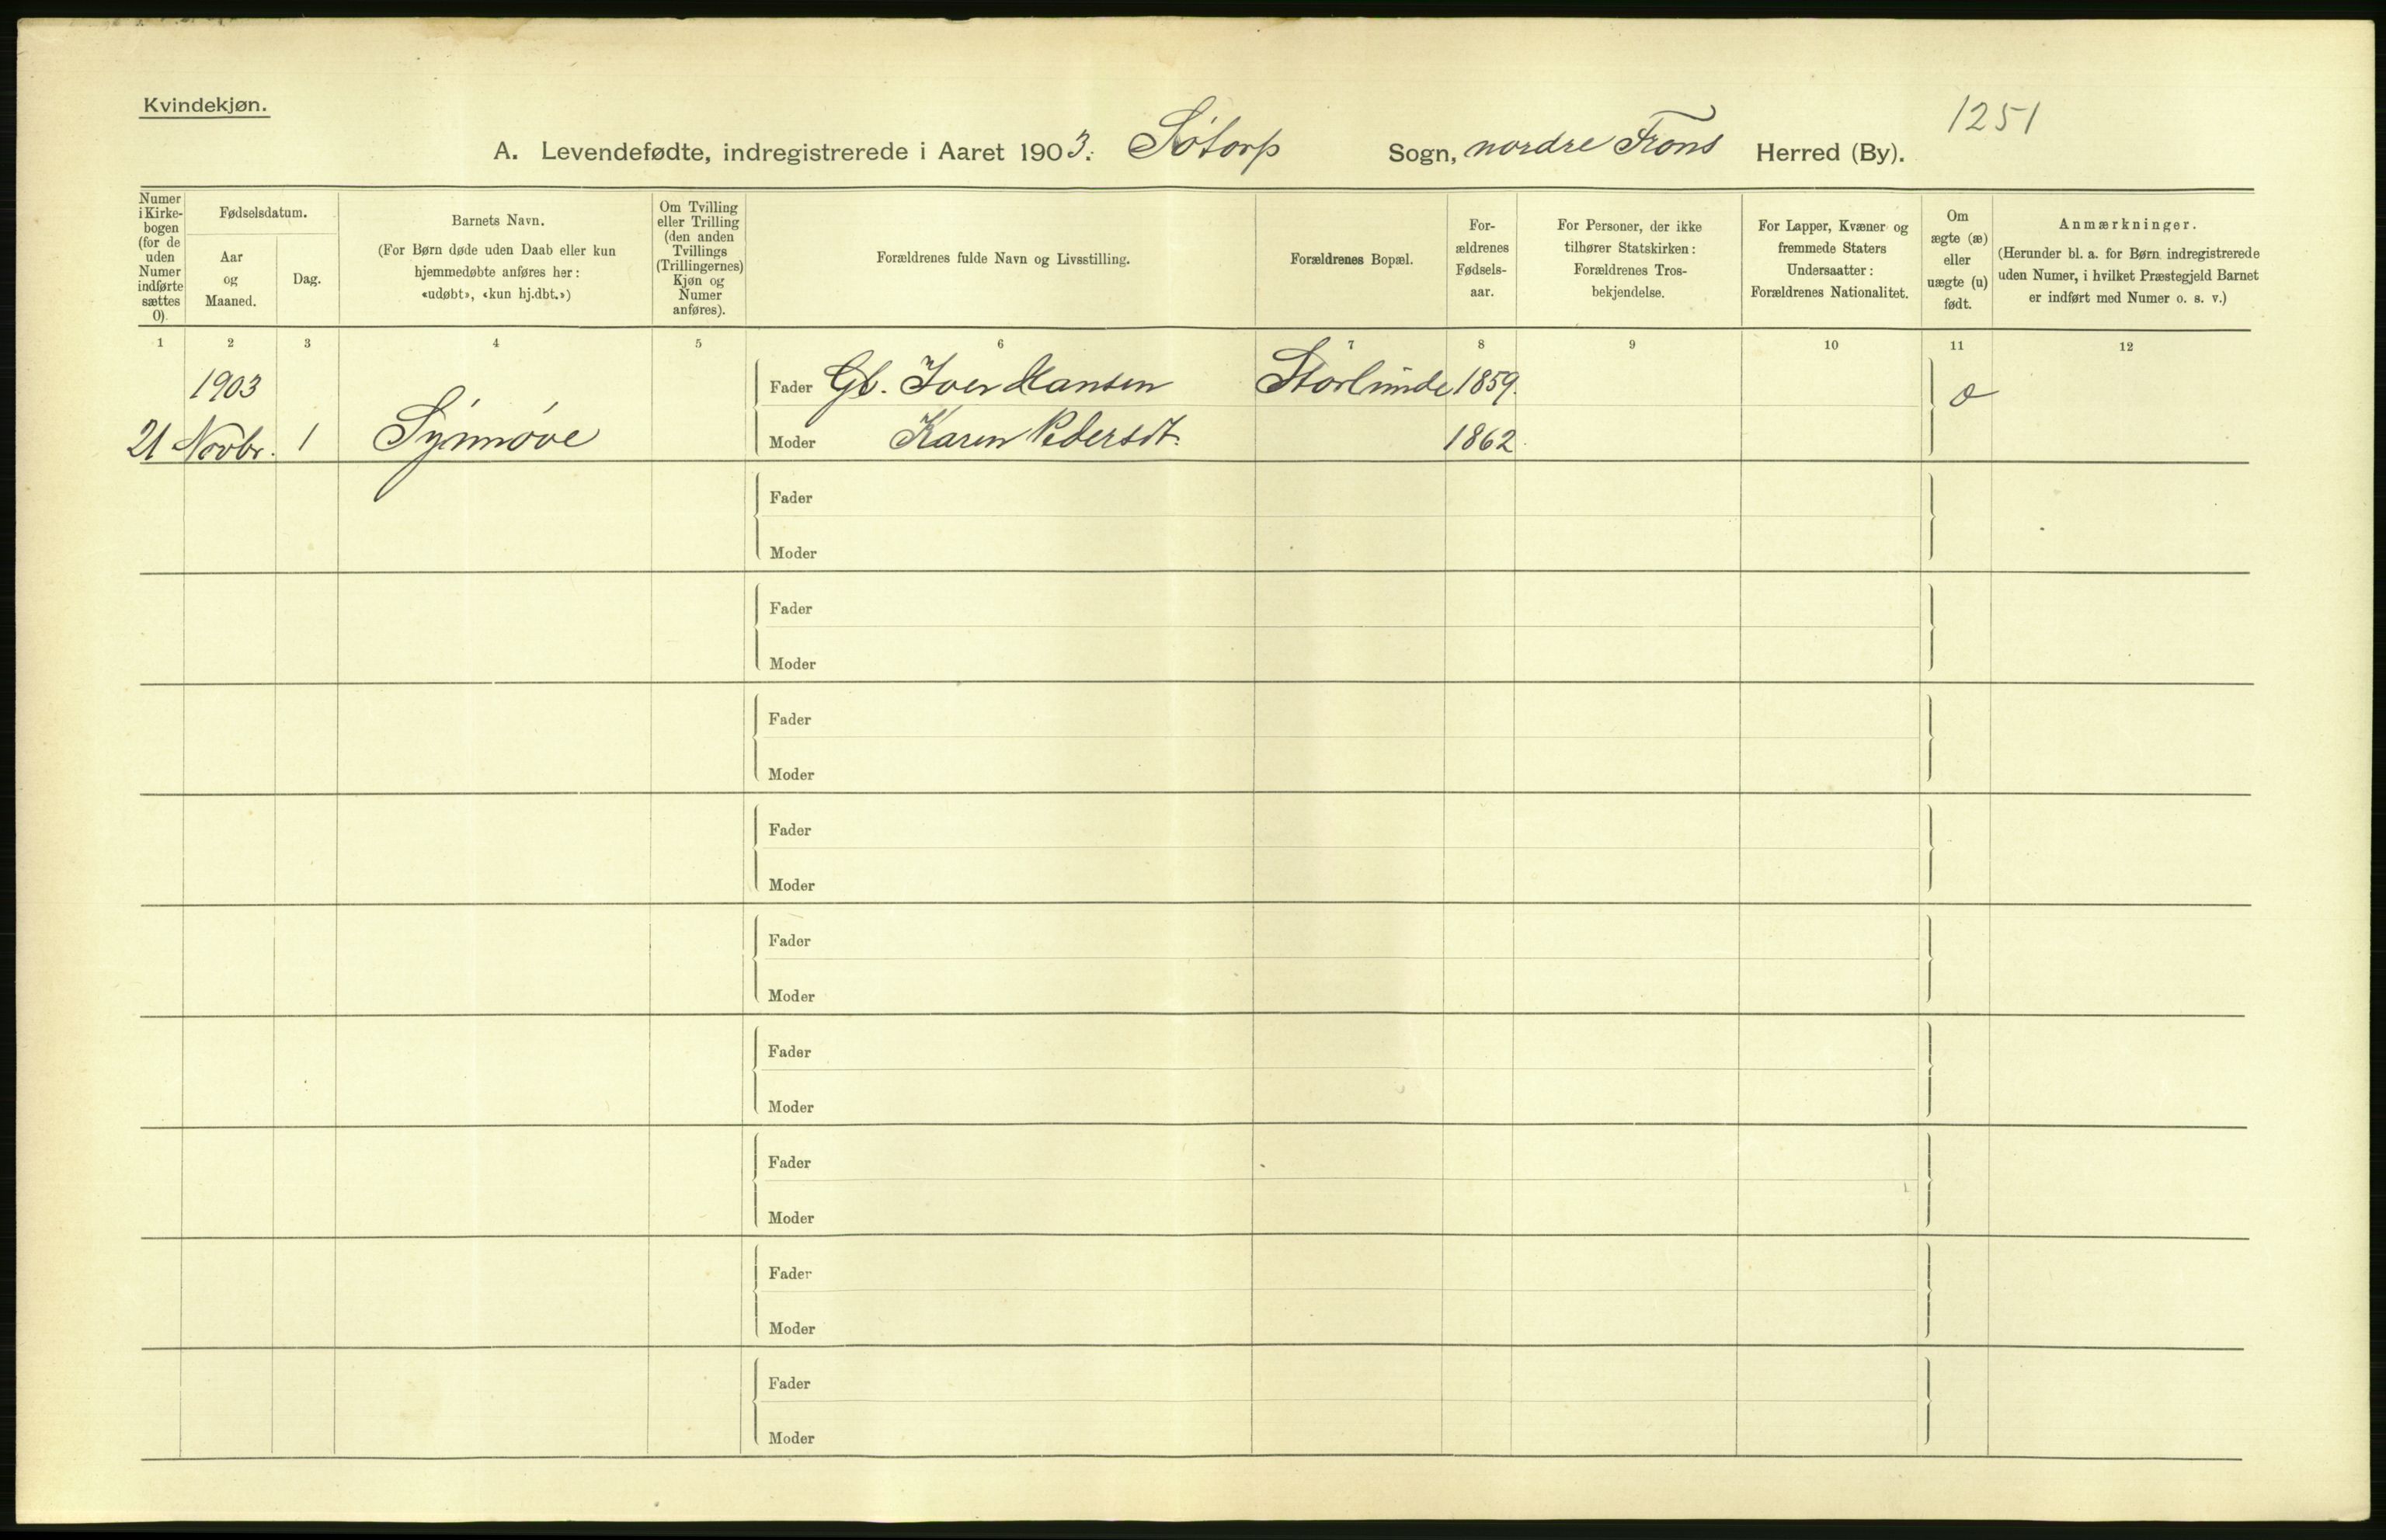 Kvindekjøn.
1251
A. Levendefødte, indregistrerede i Aaret 1903. Sødorp Sogn, nordre Frons Herred (By).
Numer i Kirkebogen (for de uden Numer indførte sættes 0).
Fødselsdatum.
Aar og Maaned.
Dag.
Barnets Navn.
(For Børn døde uden Daab eller kun
hjemmedøbte anføres her:
«udøbt», «kun hj.dbt.»)
Om Tvilling
eller Trilling
(den anden
Tvillings
(Trillingernes)
Kjøn og
Numer
anføres).
Forældrenes fulde Navn og Livsstilling.
Forældrenes Bopæl.
For-
ældrenes
Fødsels-
aar.
For Personer, der ikke
tilhører Statskirken:
Forældrenes Tros-
bekjendelse.
For Lapper, Kvæner og
fremmede Staters
Undersaatter:
Forældrenes Nationalitet.
Om
ægte (æ)
eller
uægte (u)
født.
Anmærkninger.
(Herunder bl. a. for Børn indregistrerede
uden Numer, i hvilket Præstegjeld Barnet
er indført med Numer o. s. v.)
1 2 3 4 5 6 7 8 9 10 11 12
1903 Fader Gb. Iver Hansen Storlunde 1859.
21 Novbr. 1 Synnøve Moder Karen Pedersdt. 1862.
Fader
Moder
Fader
Moder
Fader
Moder
Fader
Moder
Fader
Moder
Fader
Moder
Fader
Moder
Fader
Moder
Fader
Moder